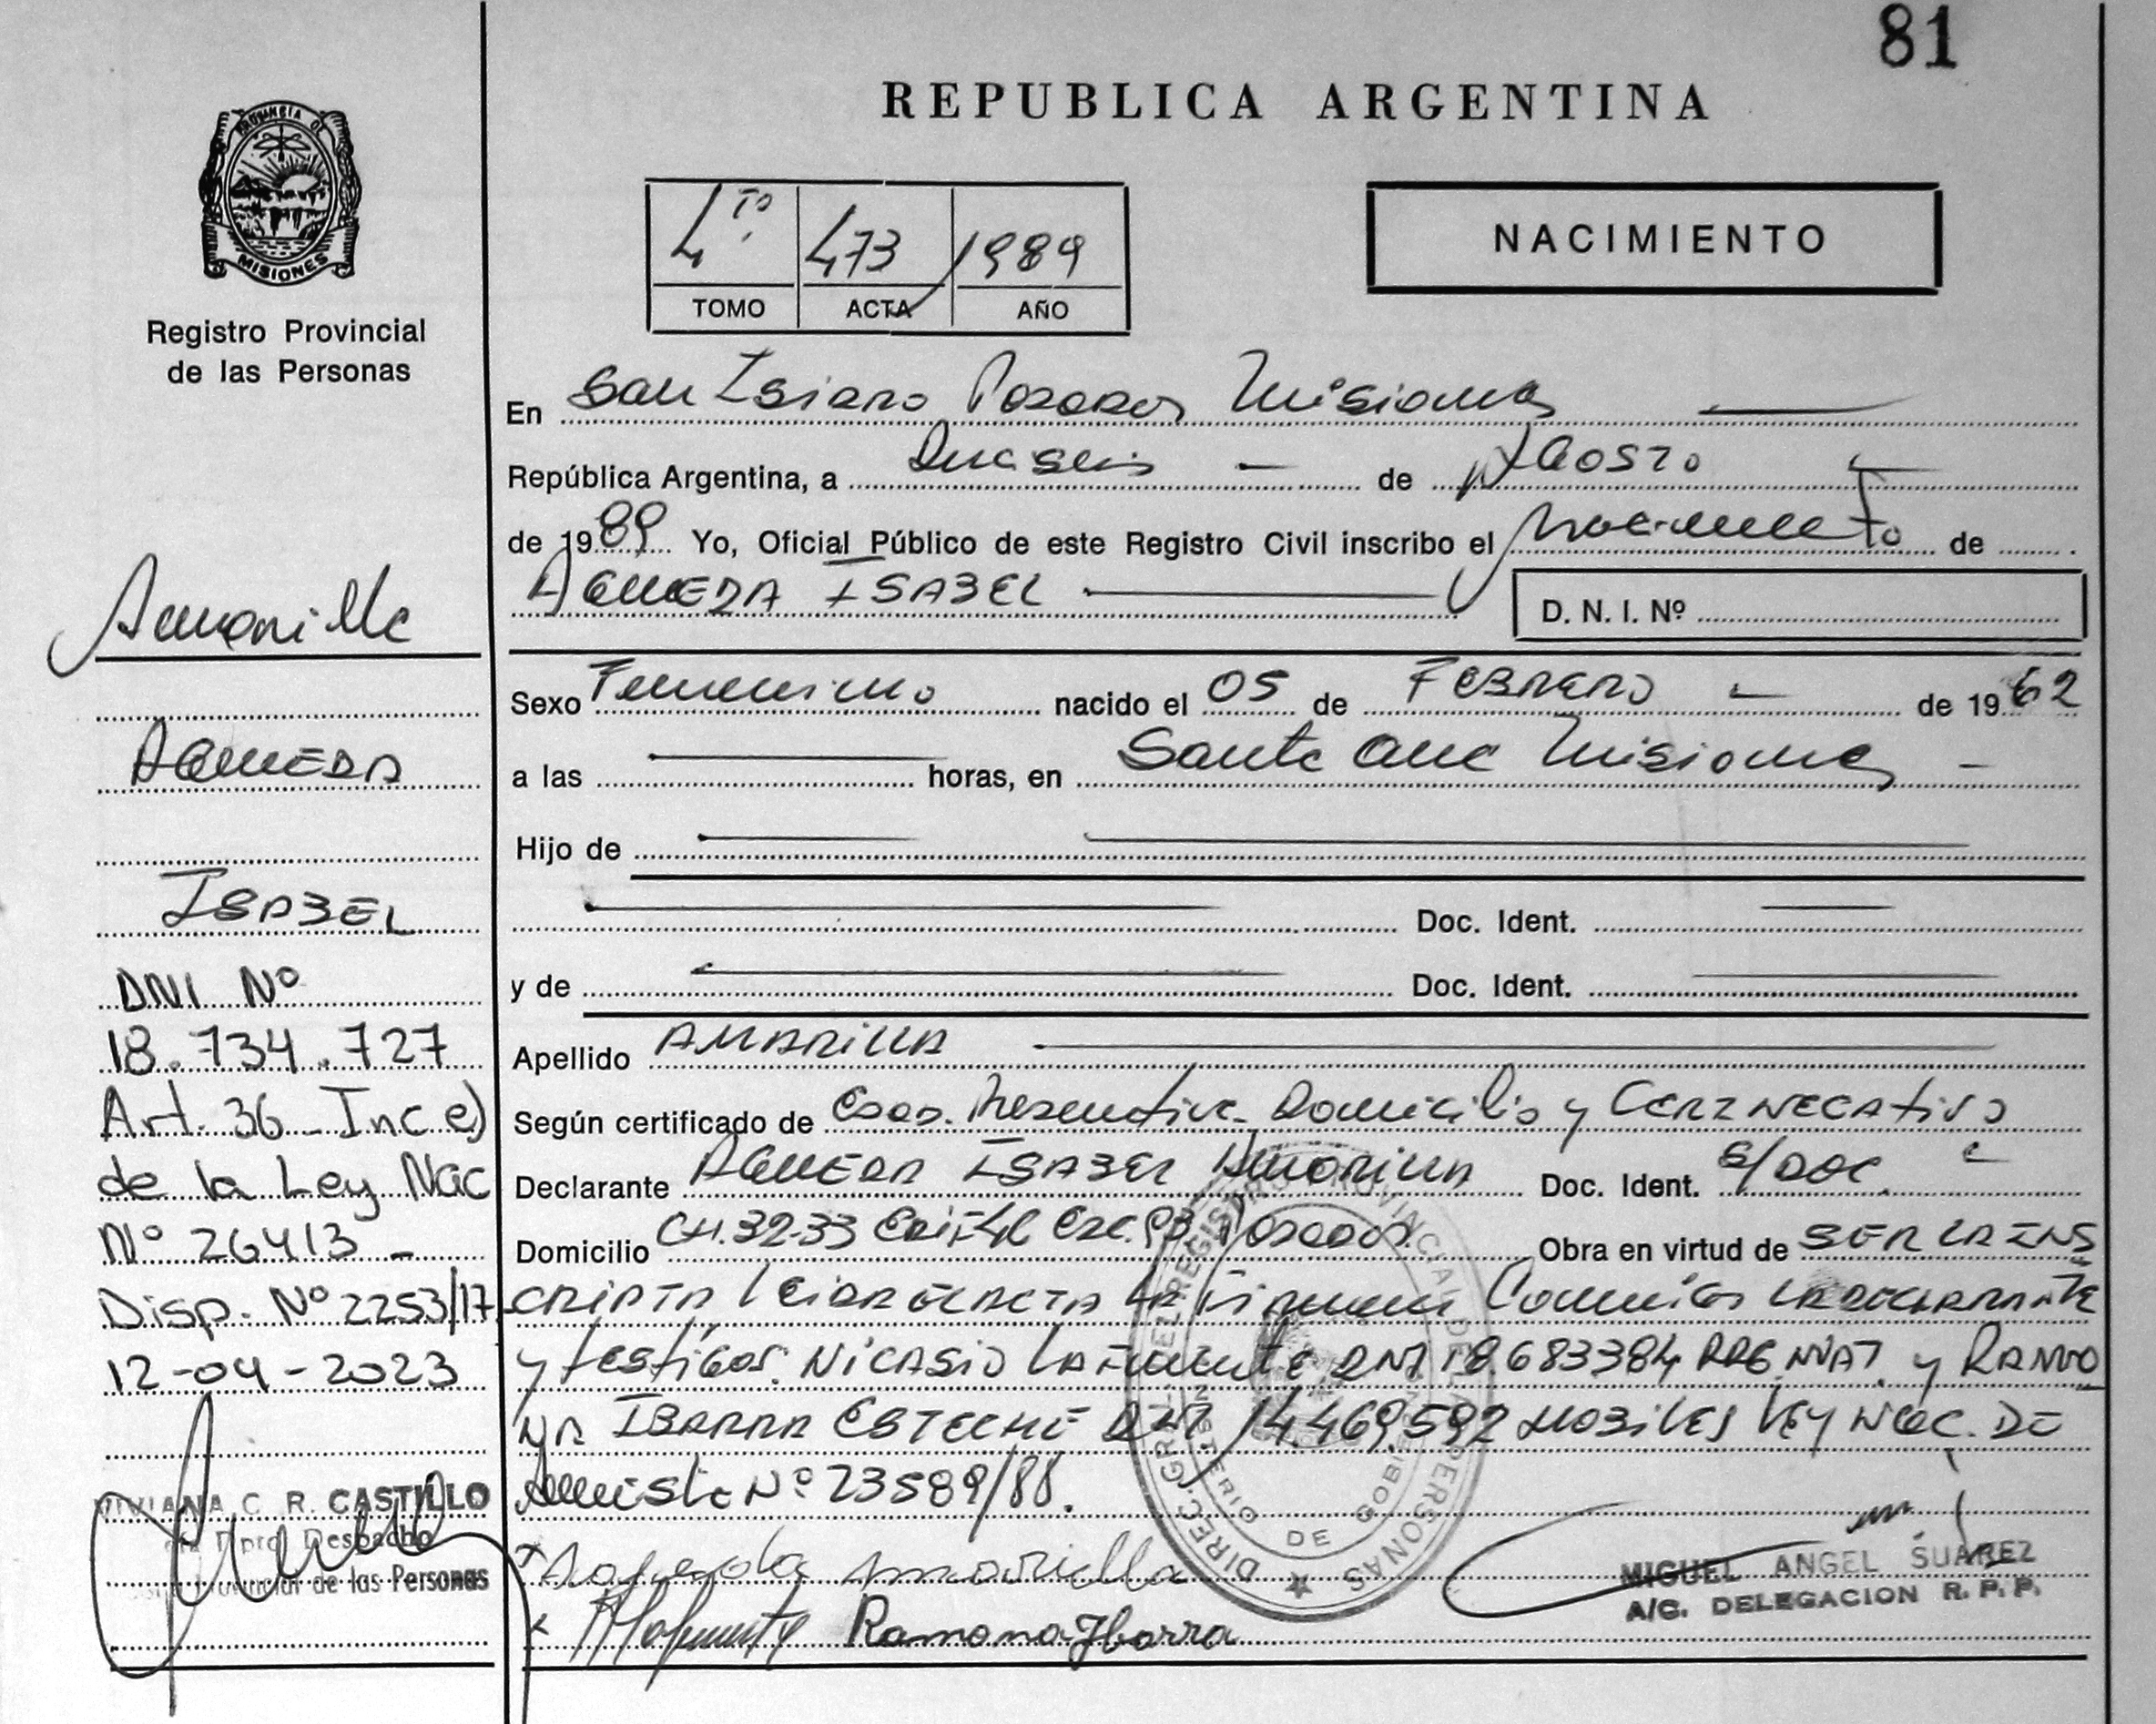 81
REPUBLICA ARGENTINA
PROVINCIA DE
MISIONES
Registro Provincial
de las Personas
4to. 473 1989
TOMO ACTA AÑO
NACIMIENTO
En San Isidro Posadas Misiones
República Argentina, a Dieciseis de Agosto
de 1989 Yo, Oficial Público de este Registro Civil inscribo el nacimiento de
AGUEDA ISABEL
D. N. I. Nº
Sexo Femenino nacido el 05 de FEBRERO de 1962
a las horas, en Santa Ana Misiones
Hijo de
Doc. Ident.
y de Doc. Ident.
Apellido AMARILLA
Según certificado de Edad. Presuntiva. Domicilio y CERT NEGATIVO
Declarante AGUEDA ISABEL AMARILLA Doc. Ident. S/DOC.
Domicilio CH. 32-33 Posadas. Obra en virtud de SER LA INS
CRIPTA Leida el ACTA La Firman Conmigo LA DECLARANTE
y testigos. NICASIO LAFUENTE DNI 18683384 ARG NAT. y RAMO
NA IBARRA ESTECHE DNI. 14.469.592 HABILES LEY NAC. DE
Amnistia Nº 23589/88.
Agueda Amarilla
Lafuente Ramona Ibarra
DIREC. GRAL. DEL REGISTRO PROVINCIAL DE LAS PERSONAS
MINISTERIO DE GOBIERNO
MIGUEL ANGEL SUAREZ
A/C. DELEGACION R. P. P.
Amarilla
AGUEDA
ISABEL
DNI Nº
18.734.727
Art. 36 Inc e)
de la Ley Nac
Nº 26413 -
Disp. Nº 2253/17
12-04-2023
VIVIANA C. R. CASTILLO
Dpto Despacho
Provincial de las Personas